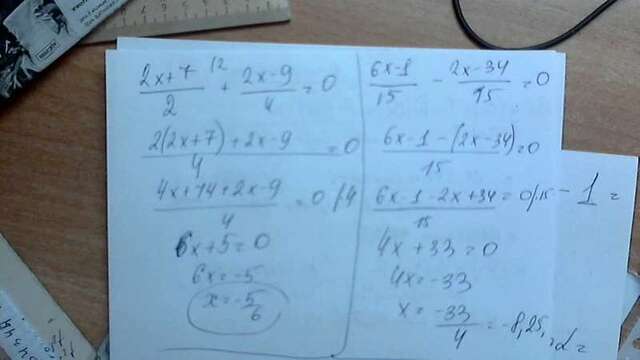 (2x+7)/2 ^(2 + (2x-9)/4 = 0
2(2x+7)+2x-9/4 = 0
4x+14+2x-9/4 = 0 /4
6x+5=0
6x=-5
x=-5/6
6x-1/15 - 2x-34/15 = 0
6x-1-(2x-34)/15 = 0
6x-1-2x+34/15 = 0/·15
4x+33=0
4x=-33
x = -33/4 = -8,25
- 1 =